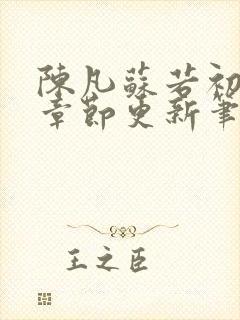 陳凡蘇若初
章節更新筆
王之臣